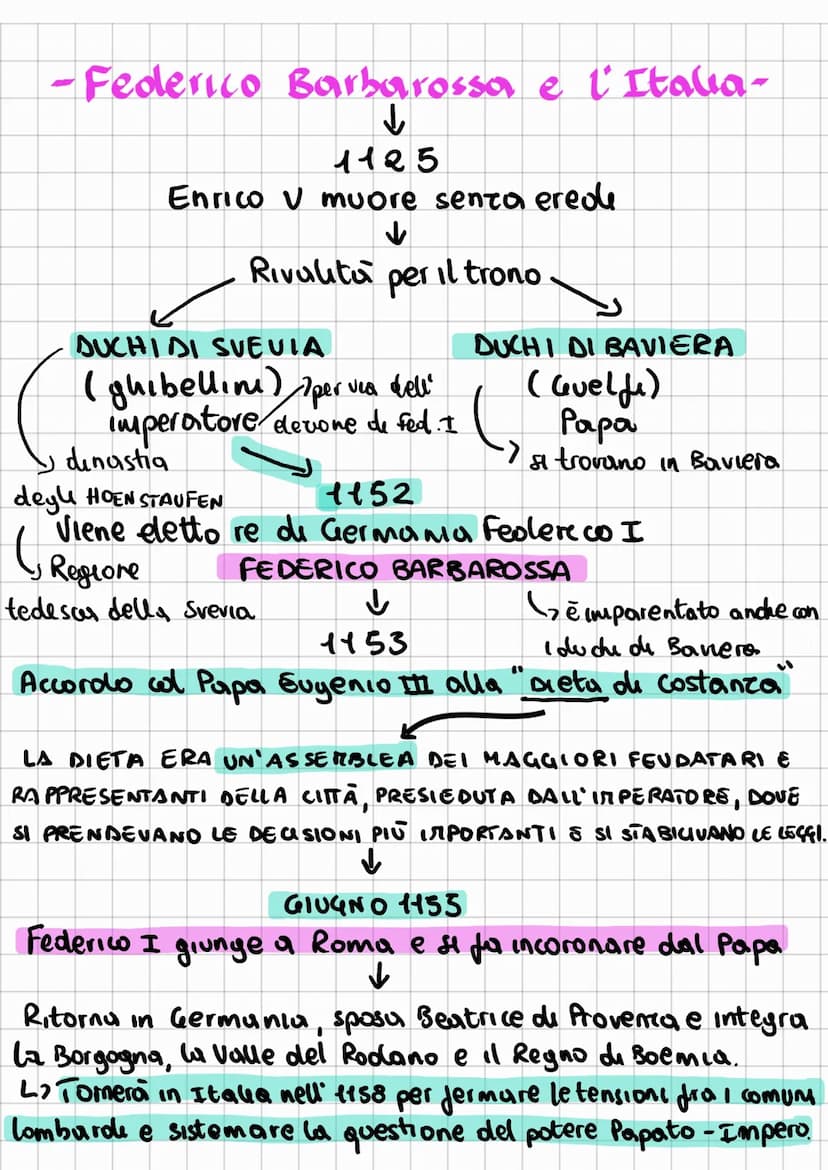 - Federico Barbarossa e l'Italia -
1125
Enrico V muore senza erede
Rivalità per il trono
DUCHI DI SVEVIA
DUCHI DI BAVIERA
(ghibellini) per via dell'
(Guelfi)
imperatore elezione di Fed. I
Papa
dinastia
si trovano in Baviera
degli HOENSTAUFEN
1152
Viene eletto re di Germania Federico I
Regione
FEDERICO BARBAROSSA
tedesca della Svevia
è imparentato anche con
1153
i duchi di Baviera
Accordo col Papa Eugenio III alla "Dieta di Costanza"
LA DIETA ERA UN'ASSEMBLEA DEI MAGGIORI FEUDATARI E
RAPPRESENTANTI DELLA CITTÀ, PRESIEDUTA DALL'IMPERATORE, DOVE
SI PRENDEVANO LE DECISIONI PIÙ IMPORTANTI E SI STABILIVANO LE LEGGI.
GIUGNO 1155
Federico I giunge a Roma e si fa incoronare dal Papa
Ritorna in Germania, sposa Beatrice di Provenza e integra
la Borgogna, la Valle del Rodano e il Regno di Boemia.
Tornerà in Italia nell' 1158 per fermare le tensioni fra i comuni
lombardi e sistemare la questione del potere Papato - Impero.